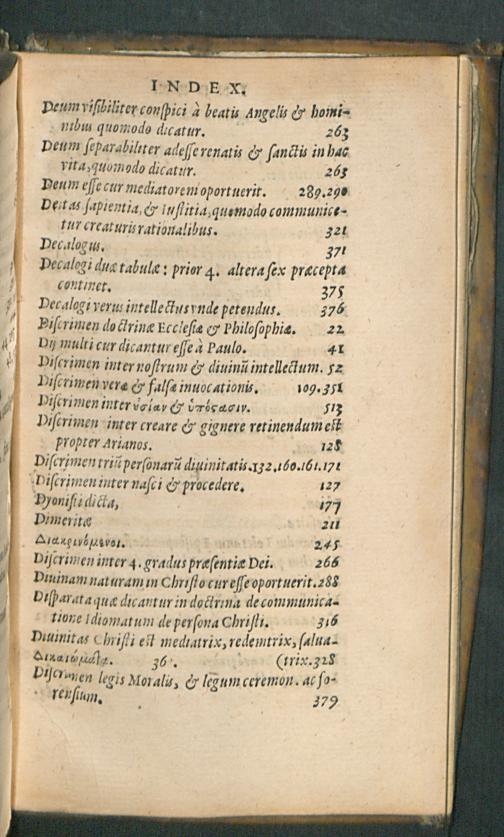 INDEX.
Deum visibiliter conspici à beatis Angelis & homi-
nibus quomodo dicatur. 263
Deum separabiliter adesse renatis & sanctis in hac
vita, quomodo dicatur. 263
Deum esse cur mediatorem oportuerit. 289.290
Deitas sapientia, & Iustitia, quomodo communice-
tur creaturis rationalibus. 321
Decalogus. 371
Decalogi duæ tabulæ : prior 4. altera sex præcepta
continet. 375
Decalogi verus intellectus vnde petendus. 376
Discrimen doctrinæ Ecclesiæ & Philosophiæ. 22
Dij multi cur dicantur esse à Paulo. 41
Discrimen inter nostrum & diuinũ intellectum. 52
Discrimen veræ & falsæ inuocationis. 109.351
Discrimen inter ὀσίαν & ὑπόςασιν. 513
Discrimen inter creare & gignere retinendum est
propter Arianos. 128
Discrimen triũ personarũ diuinitatis.132.160.161.171
Discrimen inter nasci & procedere. 127
Dyonisii dicta, 177
Dimeritæ 211
Διακρινόμενοι. 245
Discrimen inter 4. gradus præsentiæ Dei. 266
Diuinam naturam in Christo cur esse oportuerit. 288
Disparata quæ dicantur in doctrina de communica-
tione Idiomatum de persona Christi. 316
Diuinitas Christi est mediatrix, redemtrix, salua-
Δικαιώματα. 36 . (trix.328
Discrimen legis Moralis, & legum ceremon. ac fo-
rensium. 379